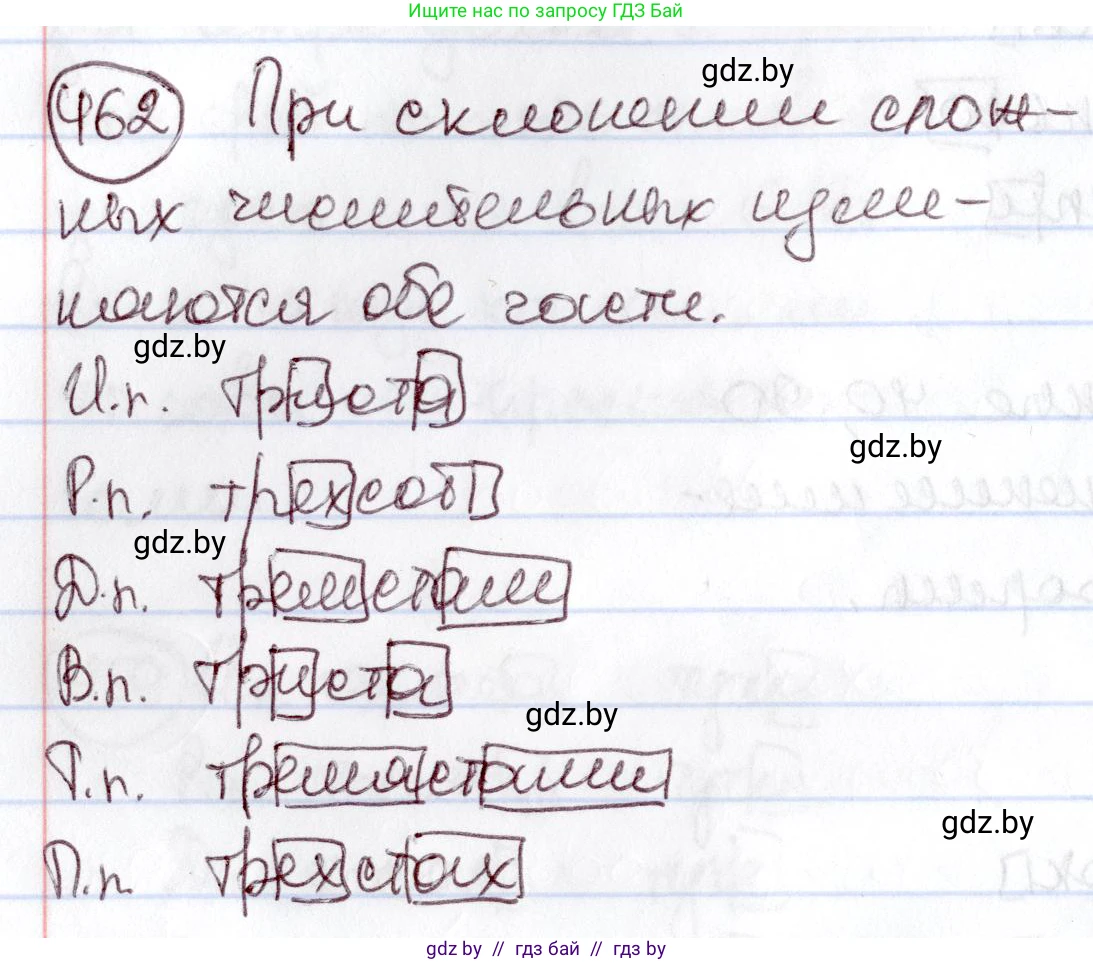 Ищите нас по запросу ГДЗ Бай
gdz.by
462 При склонении слож-
ных числительных изме-
няются обе части.
gdz.by
И.п. триста
gdz.by
Р.п. трехсот
gdz.by
Д.п. тремстам
В.п. триста
gdz.by
Т.п. тремястами
gdz.by
П.п. трехстах
gdz.by // гдз бай // гдз by